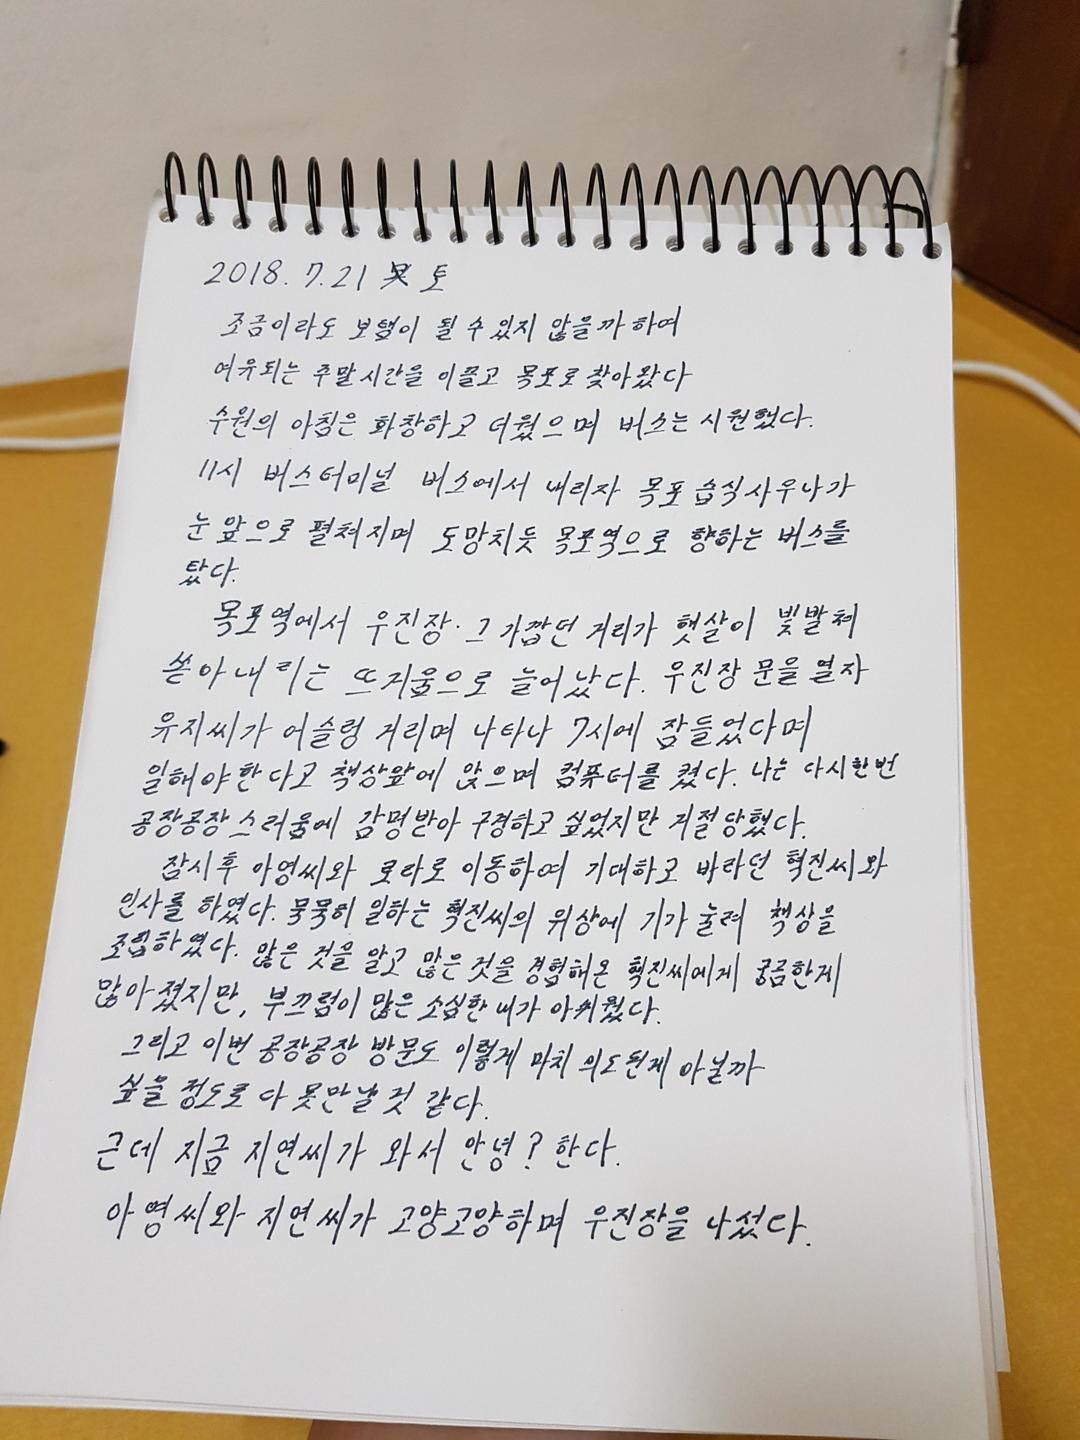 2018. 7. 21 토
조금이라도 보탬이 될 수 있지 않을까 하여
여유되는 주말시간을 이끌고 목포로 찾아왔다
수원의 아침은 화창하고 더웠으며 버스는 시원했다.
11시 버스터미널 버스에서 내리자 목포 습식사우나가
눈 앞으로 펼쳐지며 도망치듯 목포역으로 향하는 버스를
탔다.
목포역에서 우진장. 그 가깝던 거리가 햇살이 빛발쳐
쏟아내리는 뜨거움으로 늘어났다. 우진장 문을 열자
유지씨가 어슬렁 거리며 나타나 7시에 잠들었다며
일해야한다고 책상앞에 앉으며 컴퓨터를 켰다. 나는 다시한번
공장공장스러움에 감명받아 구경하고 싶었지만 거절당했다.
잠시후 아영씨와 로라로 이동하여 기대하고 바라던 혁진씨와
인사를 하였다. 묵묵히 일하는 혁진씨의 위상에 기가 눌려 책상을
조립하였다. 많은 것을 알고 많은 것을 경험해온 혁진씨에게 궁금한게
많아졌지만, 부끄럼이 많은 소심한 내가 아쉬웠다.
그리고 이번 공장공장 방문도 이렇게 마치 의도된게 아닐까
싶을 정도로 다 못만날 것 같다.
근데 지금 지연씨가 와서 안녕? 한다.
아영씨와 지연씨가 고양고양하며 우진장을 나섰다.